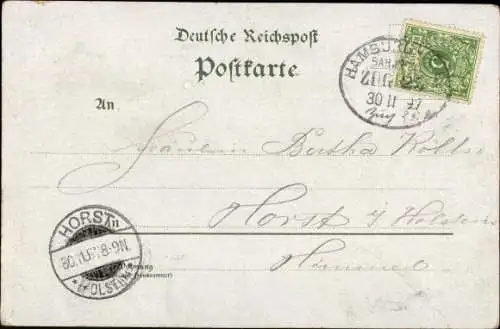 Deutsche Reichspost
Postkarte
HAMBURG
BAHN
ZUG
30 11 97
An
Fräulein Bertha Kölln
Horst i/ Holstein
Himmel
HORST
30.11.97. 8-9N.
* (HOLSTEIN)
Wohnung